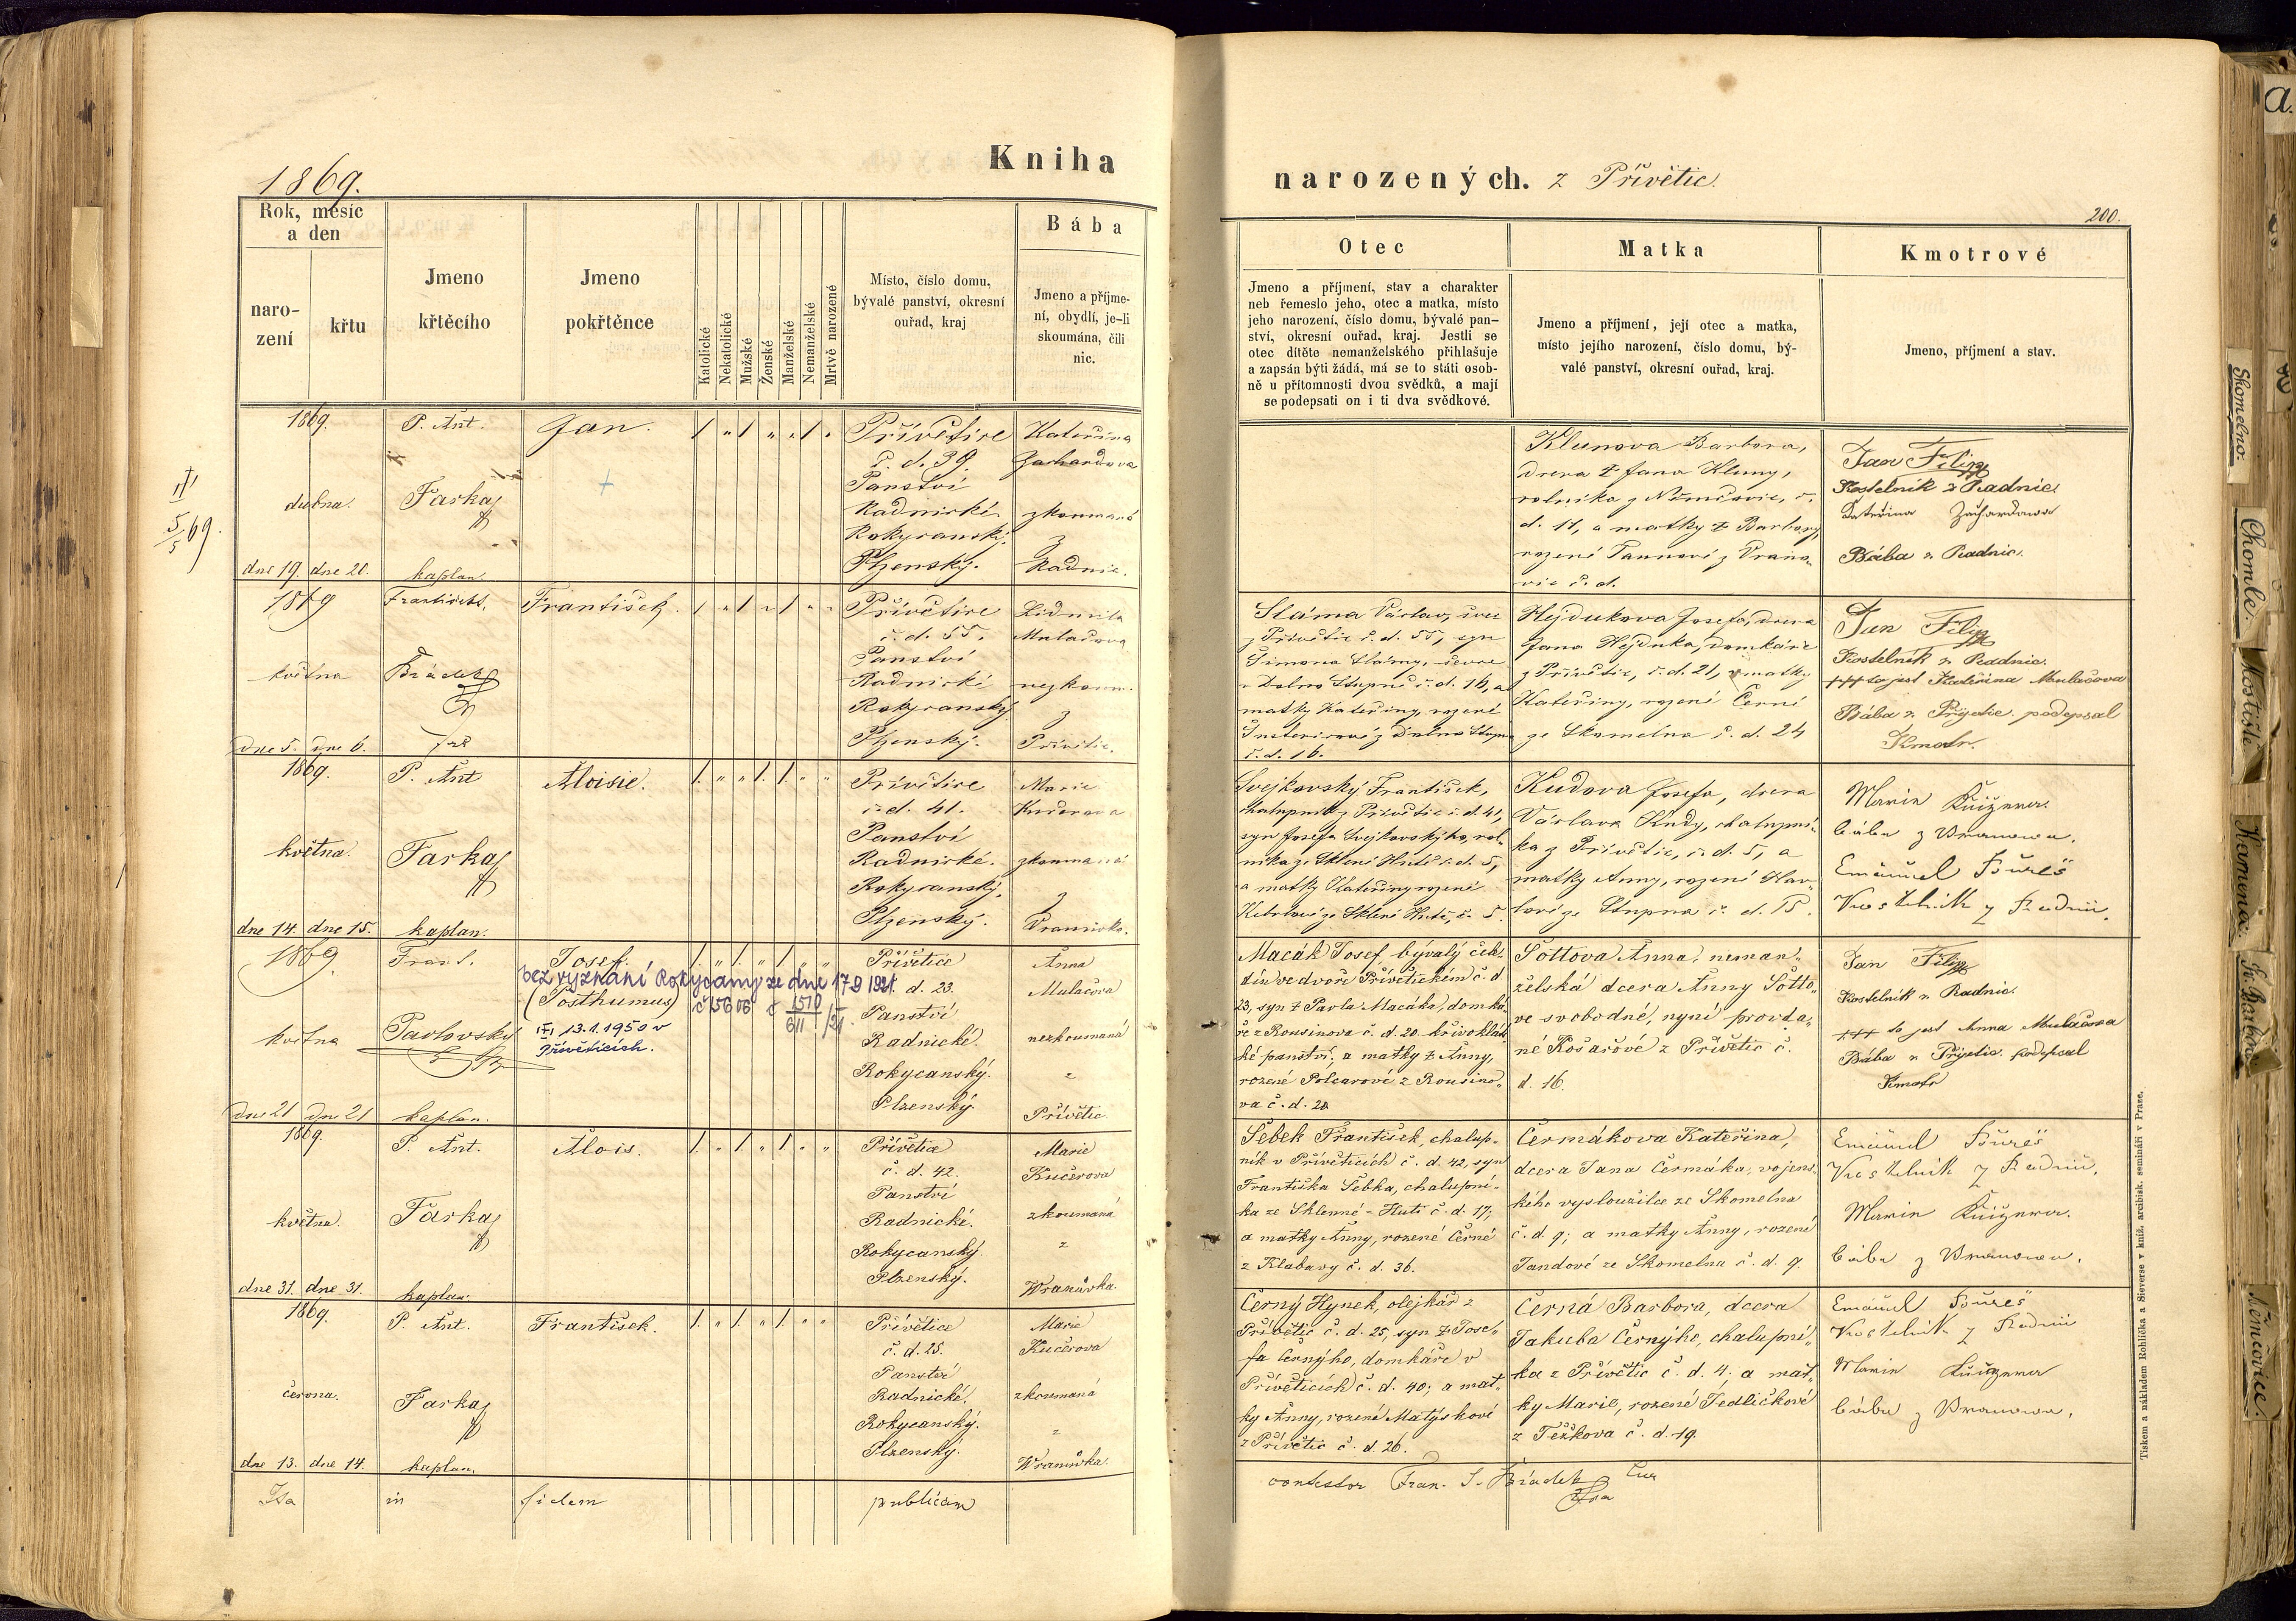 1869.
Kniha
narozených. z Přívětic.
200.
Rok, měsíc
a den
naro-
zení
křtu
Jmeno
křtěcího
Jmeno
pokřtěnce
Katolické
Nekatolické
Mužské
Ženské
Manželské
Nemanželské
Mrtvě narozené
Místo, číslo domu,
bývalé panství, okresní
ouřad, kraj
Bába
Jmeno a příjme-
ní, obydlí, je-li
skoumána, čili
nic.
Otec
Jmeno a příjmení, stav a charakter
neb řemeslo jeho, otec a matka, místo
jeho narození, číslo domu, bývalé pan-
ství, okresní ouřad, kraj. Jestli se
otec dítěte nemanželského přihlašuje
a zapsán býti žádá, má se to státi osob-
ně u přítomnosti dvou svědků, a mají
se podepsati on i ti dva svědkové.
Matka
Jmeno a příjmení, její otec a matka,
místo jejího narození, číslo domu, bý-
valé panství, okresní ouřad, kraj.
Kmotrové
Jmeno, příjmení a stav.
1869.
dubna.
dne 19. dne 20.
5/5 69.
P. Ant.
Farka
kaplan.
Jan.
Přívětice
č. d. 39.
Panství
Radnické
Rokycanský.
Plzenský.
Kateřina
Zachardova
zkoumaná
z
Radnic.
Klunova Barbora,
dcera † Jana Kluny,
rolníka z Němčovic, č.
d. 11, a matky † Barbory,
rozené Pannové z Vrano-
vic č. d.
Jan Filip
Kostelník z Radnic
Kateřina Zachardowa
Bába z Radnic.
1869
května
dne 5. dne 6.
František.
Brádek
František.
Přívětice
č. d. 55.
Panství
Radnické
Rokycanský
Plzenský.
Lidmila
Mulačova
nezkoum.
z
Přívětic.
Sláma Václav, švec
z Přívětic č. d. 55, syn
Šimona Slámy, ševce
z Dolno Stupně č. d. 16, a
matky Kateřiny, rozené
č. d. 16.
Hejdukova Josefa, dcera
Jana Hejduka, domkáře
z Přívětic, č. d. 21, a matky
Kateřiny, rozené Černé
ze Skomelna č. d. 24
Jan Filip
Kostelník z Radnic.
+++ to jest Kateřina Mulačova
Bába z Přijetic. podepsal
Kmotr.
1869.
května.
dne 14. dne 15.
P. Ant
Farka
kaplan.
Aloisie.
Přívětice
č. d. 41.
Panství
Radnické.
Rokycanský.
Plzenský.
Marie
Kučerova
zkoumaná
z
Vranovic.
Svejkovský František,
chalupník z Přívětic č. d. 41,
syn Josefa Svejkovského, rol-
níka ze Sklené Hutě č. d. 5,
a matky Kateřiny rozené
ze Sklené Hutě, č. 5.
Kudova Josefa, dcera
Václava Kudy, chalupní-
ka z Přívětic, č. d. 5, a
matky Anny, rozené Hav-
lové ze Stupna č. d. 15.
Marie Kučerova.
bába z Vranowa.
Emanuel Bureš
Kostelník z Radnic.
1869.
května
dne 21 dne 21
Frant.
Pavlovský
kaplan.
Josef.
(Posthumus)
bez vyznání Rokycany ze dne 17 9 1921.
č 15606 č 1510/611 /21.
13.1.1950 v
Příveticích.
Přívětice
č. d. 23.
Panství
Radnické.
Rokycanský.
Plzenský.
Anna
Mulačova
nezkoumaná
z
Přívětic
Macák Josef, bývalý čele-
dín ve dvoře Přívětickém č. d
23, syn † Pavla Macáka, domká-
ře z Rousinova č. d. 20. křivoklát-
ké panství, a matky † Anny,
rozené Polcarové z Rousino-
va č. d. 20
Šottova Anna, neman-
želská dcera Anny Šotto-
ve svobodné, nyní provda-
né Košařové z Přívětic č.
d. 16.
Jan Filip
Kostelník z Radnic.
+++ to jest Anna Mulačova
Bába z Přijetic. podepsal
Kmotr
1869.
května.
dne 31. dne 31.
P. Ant.
Farka
kaplan.
Alois.
Přívětice
č. d. 42.
Panství
Radnické.
Rokycanský.
Plzenský.
Marie
Kučerova
zkoumaná
z
Wranůvka.
Šebek František, chalup-
ník v Příveticích č. d. 42, syn
Františka Šebka, chalupní-
ka ze Sklenné-Huti č. d. 17;
a matky Anny, rozené Černé
z Klabavy č. d. 36.
Čermákova Kateřina,
dcera Jana Čermáka, vojens-
kého vysloužilce ze Skomelna
č. d. 9; a matky Anny, rozené
Jandové ze Skomelna č. d. 9.
Emanuel Bureš
Kostelník z Radnic.
Marie Kučerova.
bába z Vranowa.
1869.
června.
dne 13. dne 14.
P. Ant.
Farka
kaplan.
František.
Přívětice
č. d. 25.
Panství
Radnické.
Rokycanský.
Plzenský.
Marie
Kučerova
zkoumaná
z
Wranůvka.
Černý Hynek, olejkář z
Přívětic č. d. 25, syn † Jose-
fa Černýho, domkáře v
Příveticích č. d. 40; a mat-
ky Anny, rozené Matýskové
z Přívětic č. d. 26.
Černá Barbora, dcera
Jakuba Černýho, chalupní-
ka z Přívětic č. d. 4; a mat-
ky Marie, rozené Jedličkové
z Těžkova č. d. 19.
Emanuel Bureš
Kostelník z Radnic
Marie Kučerova
bába z Vranowa.
Ita in fidem publicam
contestor Fran. S. Brádek
Tiskem a nákladem Rohlíčka a Sieverse v kníž. arcibisk. semináři v Praze.
Skomelno.
Chomle.
Mostiště
Kamenec
K. Barbor
Němčovice.